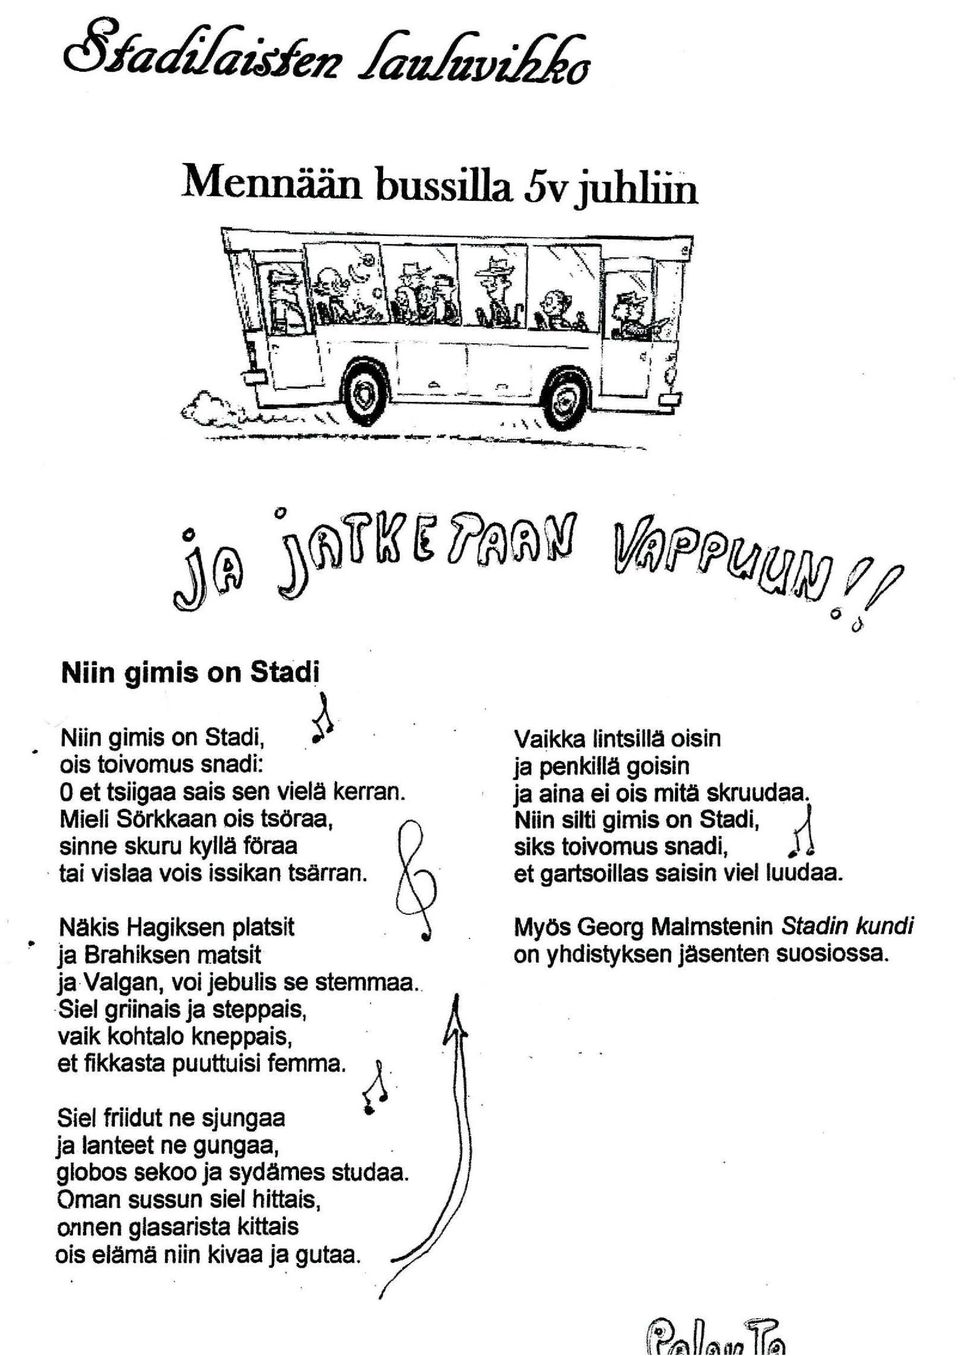 Stadilaisten lauluvihko
Mennään bussilla 5v juhliin
ja jatketaan VAPPUUN!!
Niin gimis on Stadi
Niin gimis on Stadi,
ois toivomus snadi:
O et tsiigaa sais sen vielä kerran.
Mieli Sörkkaan ois tsöraa,
sinne skuru kyllä föraa
tai vislaa vois issikan tsärran.
Näkis Hagiksen platsit
ja Brahiksen matsit
ja Valgan, voi jebulis se stemmaa.
Siel griinais ja steppais,
vaik kohtalo kneppais,
et fikkasta puuttuisi femma.
Siel friidut ne sjungaa
ja lanteet ne gungaa,
globos sekoo ja sydämes studaa.
Oman sussun siel hittais,
onnen glasarista kittais
ois elämä niin kivaa ja gutaa.
Vaikka lintsillä oisin
ja penkillä goisin
ja aina ei ois mitä skruudaa.
Niin silti gimis on Stadi,
siks toivomus snadi,
et gartsoillas saisin viel luudaa.
Myös Georg Malmstenin Stadin kundi
on yhdistyksen jäsenten suosiossa.